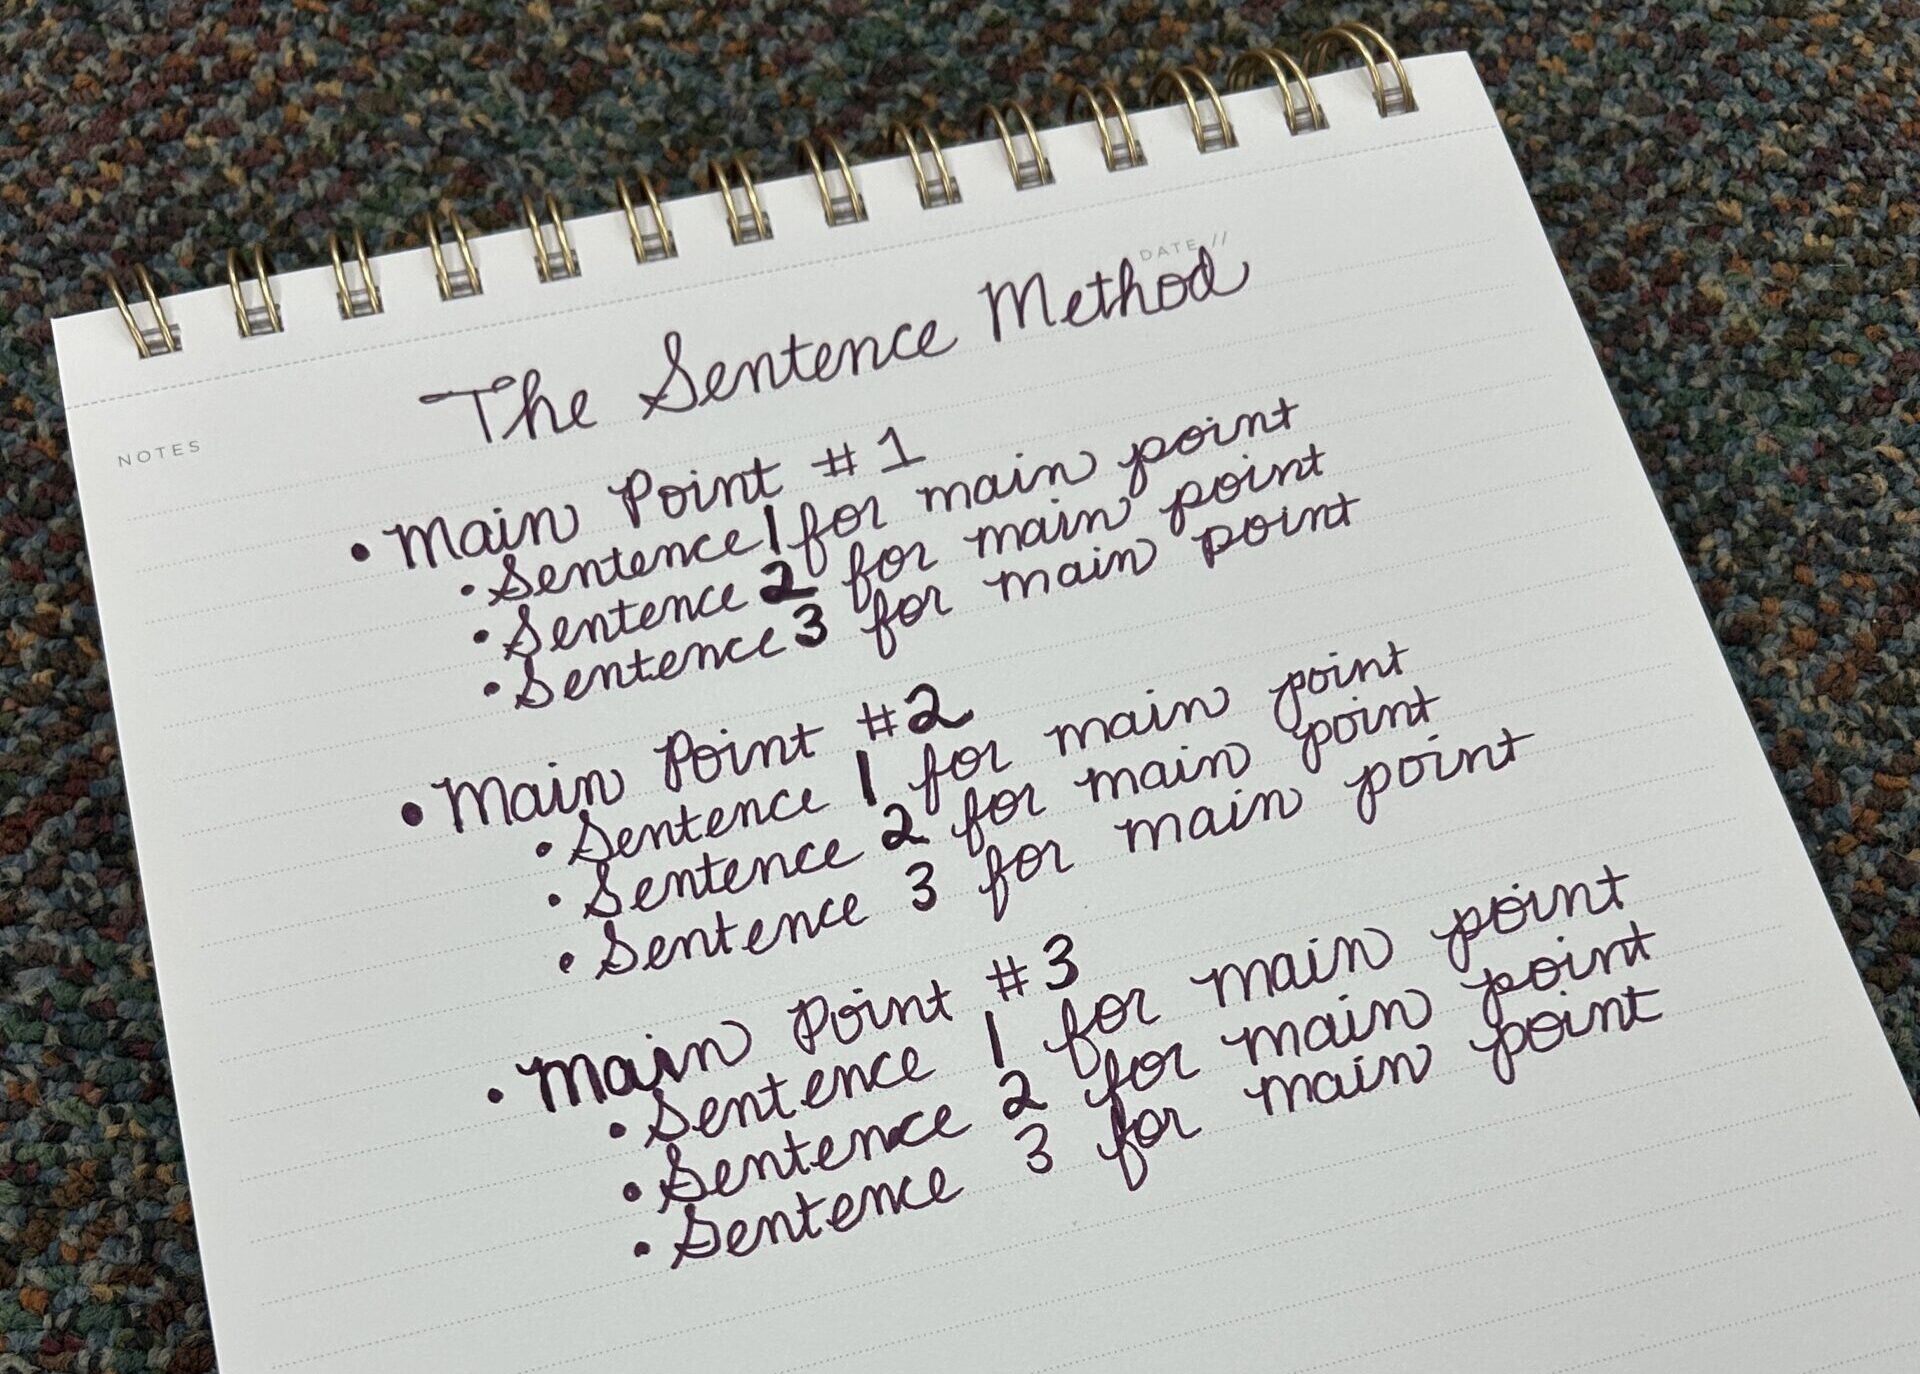 DATE //
The Sentence Method
NOTES
• Main Point #1
• Sentence 1 for main point
• Sentence 2 for main point
• Sentence 3 for main point
• Main Point #2
• Sentence 1 for main point
• Sentence 2 for main point
• Sentence 3 for main point
• Main Point #3
• Sentence 1 for main point
• Sentence 2 for main point
• Sentence 3 for main point